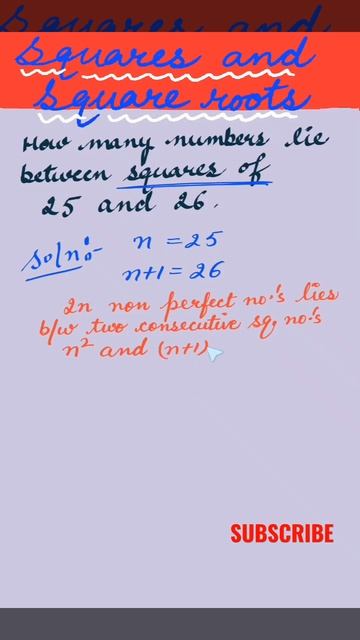 Squares and
Squares and
Square roots
How many numbers lie
between squares of
25 and 26.
Soln:-
n = 25
n+1 = 26
2n non perfect no's lies
b/w two consecutive sq. no's
n² and (n+1)
SUBSCRIBE